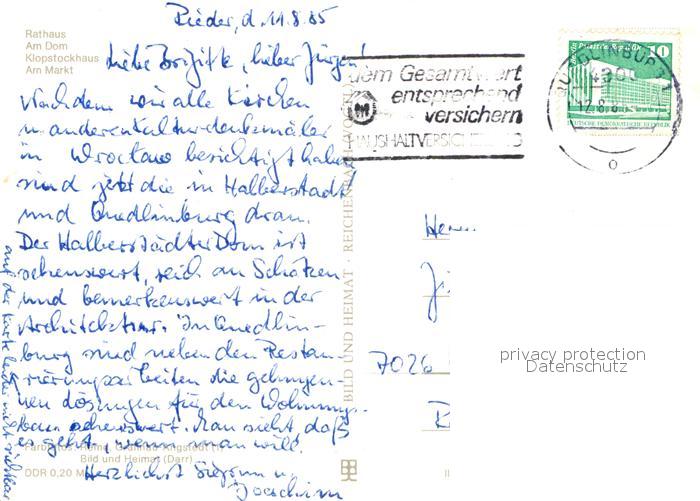 Rieder, d. 11.8.85
Rathaus
Am Dom
Klopstockhaus
Am Markt
Liebe Brigitte, lieber Jürgen!
Nachdem wir alle Kirchen
u. anderen Kulturdenkmäler
in Wroclaw besichtigt haben
sind jetzt die in Halberstadt
und Quedlinburg dran.
Der Halberstädter Dom ist
sehenswert, reich an Schätzen
und bemerkenswert in der
Architektur. In Quedlin-
burg sind neben den Restau-
rierungsarbeiten die gelungen-
nen Lösungen für den Wohnungs-
bau sehenswert. Man sieht, daß
es geht, wenn man will.
Herzlichst Sigrun u.
Joachim
auf der Karte leider nicht sichtbar
Bild und Heimat (Darr)
DDR 0,20 M
BILD UND HEIMAT · REICHENBACH
dem Gesamtwert
entsprechend
versichern
HAUSHALTVERSICHERUNG
QUEDLINBURG 1
430
12.8.8
10
DEUTSCHE DEMOKRATISCHE REPUBLIK
Herrn
7026
privacy protection
Datenschutz